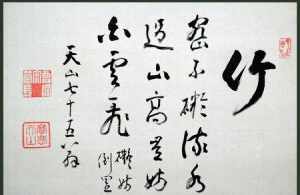 竹
密不礙流水
過山高豈妨
白雲飛
礙妨
倒置
天山七十五翁